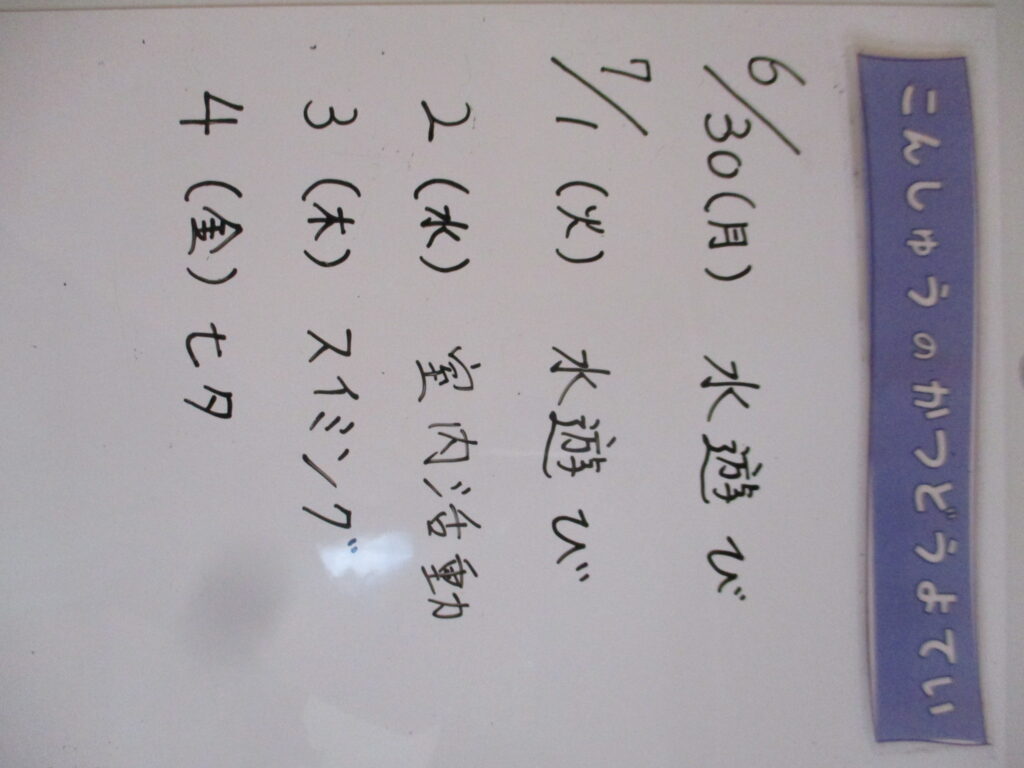 こんしゅうのかつどうよてい
6/30(月) 水遊び
7/1(火) 水遊び
2(水)室内活動
3(木) スイミング
4(金) 七夕